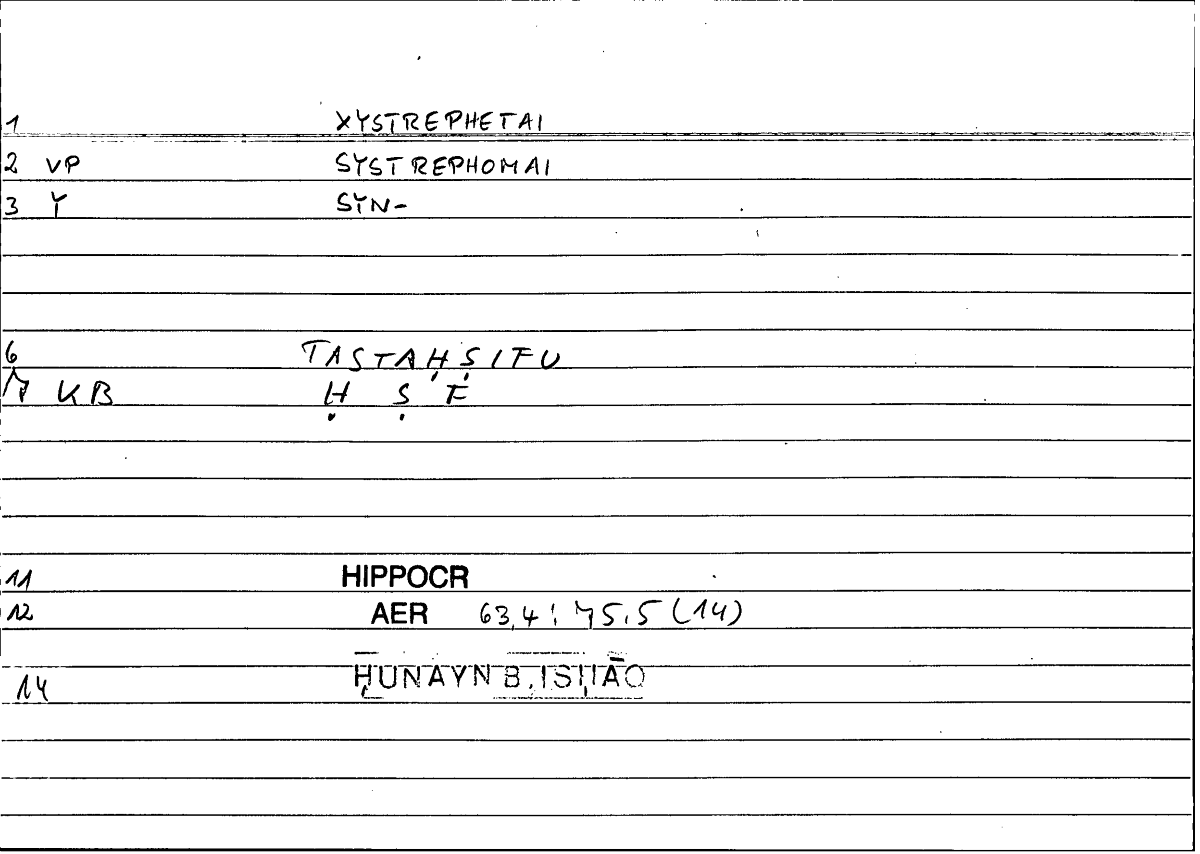 1 XYSTREPHETAI
2 VP SYSTREPHOMAI
3 Y SYN-
6 TASTAḤṢIFU
7 KB Ḥ Ṣ F
11 HIPPOCR
12 AER 63,4 ; 75,5 (14)
14 ḤUNAYN B. ISḤĀQ